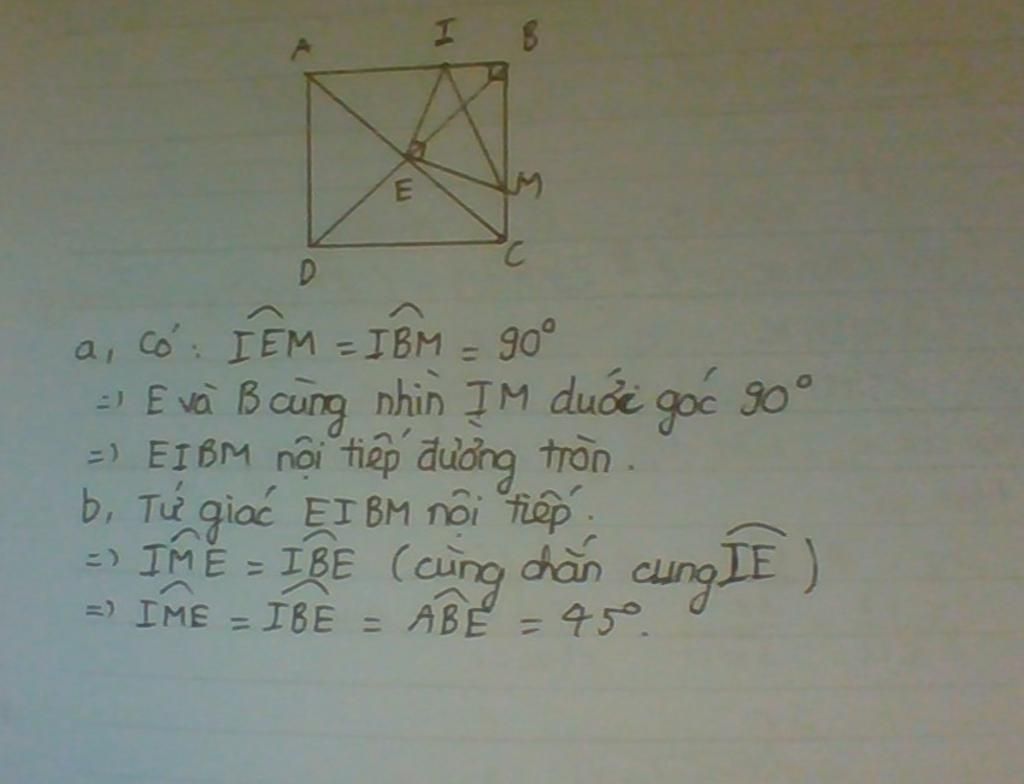 A I B
E M
D C
a, Có: IÊM = IB̂M = 90°
=> E và B cùng nhìn IM dưới góc 90°
=> EIBM nội tiếp đường tròn.
b, Tứ giác EIBM nội tiếp.
=> IM̂E = IB̂E (cùng chắn cung IE)
=> IM̂E = IB̂E = AB̂E = 45°.